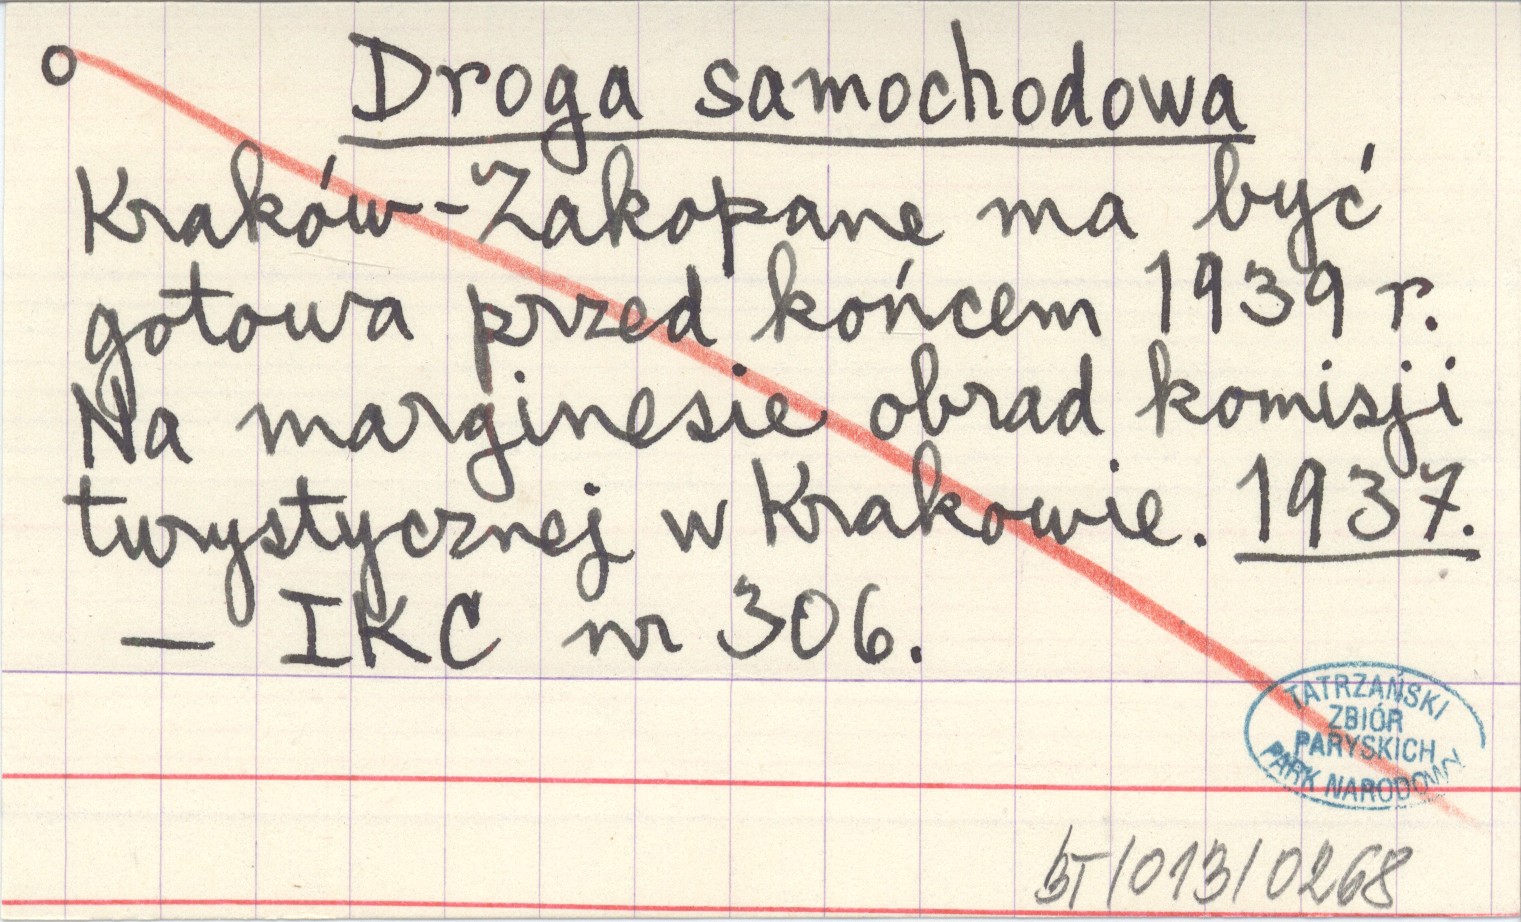 o Droga samochodowa
Kraków-Zakopane ma być
gotowa przed końcem 1939 r.
Na marginesie obrad komisji
turystycznej w Krakowie. 1937.
— IKC nr 306.
TATRZAŃSKI
ZBIÓR
PARYSKICH
PARK NARODOWY
BT/013/0268